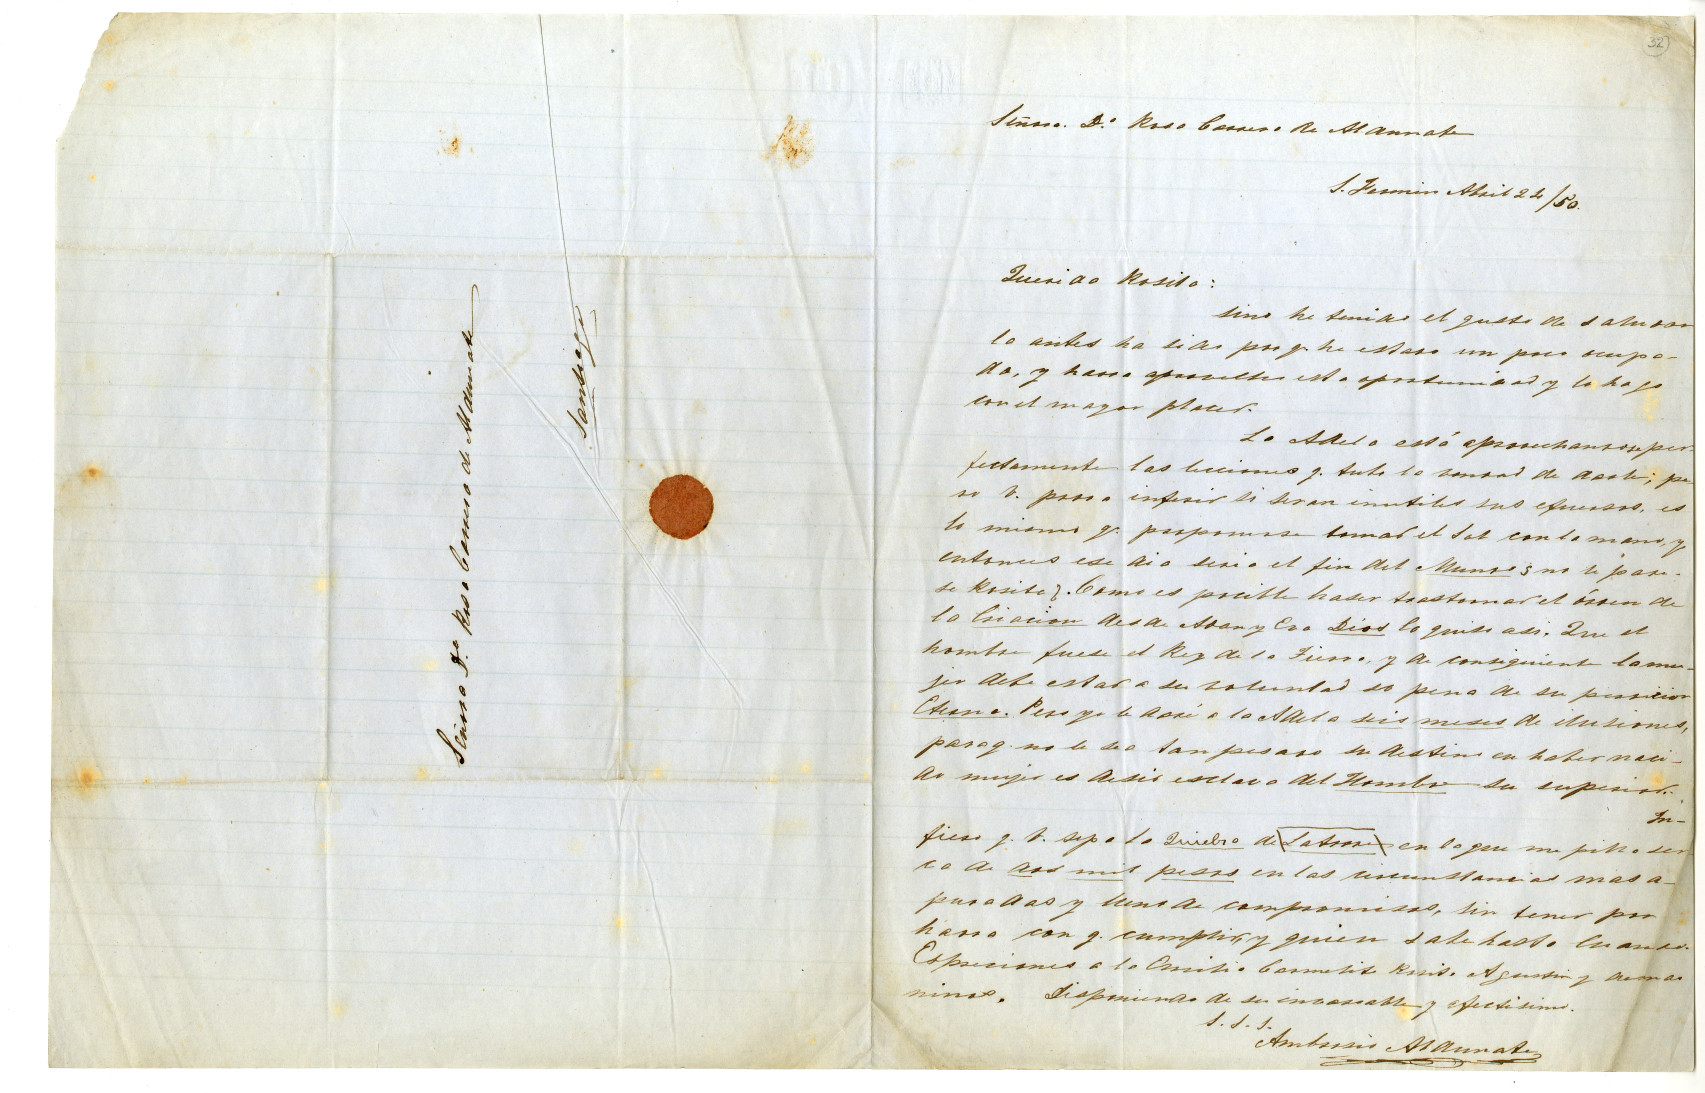 32
Señora. Dª Rosa Carrera de Aldunate
S. Fermin Abril 22/50.
Querida Rosita:
sino he tenido el gusto de saludar
la antes ha sido porq. he estado un poco ocupa-
do, y haora aprovecho esta oportunidad y lo hago
con el mayor placer.
La Adela está aprovechandose per
fectamente las lecciones q. tubo la bondad de darle; pe
ro V. podra inferir si seran inutiles sus esfuersos, es
lo mismo q. proponerse tomar el Sol con la mano, y
entonces ese dia seria el fin del Mundo ¿no le pare-
se Rosita?. Como es posible haser trastornar el órden de
la Criacion desde Adan y Eva Dios lo quiso asi. Que el
hombre fuese el Rey de la Tierra, y de consiguiente la mu-
jer debe estar a su voluntad so pena de su perdicion
Eterna. Pero yo le daré a la Adela seis meses de ilusiones,
paraq. no le sea tan pesado su destino en haber naci-
do mujer es desir esclava del Hombre su superior.
In-
fiero q. V. sepa la Quiebra de Latorre en la que me pilla ser
ca de dos mil pesos en las circunstancias mas a-
puradas y lleno de compromisos, sin tener por
haora con q. cumplir, y quien sabe hasta Cuando.
Espreciones a la Emilia Carmelita Rosita Agustin y demas
niños. Disponiendo de su invariable y afectisimo.
S. S. S.
Ambrosio Aldunate
Señora Dª Rosa Carrera de Aldunate
Santiago